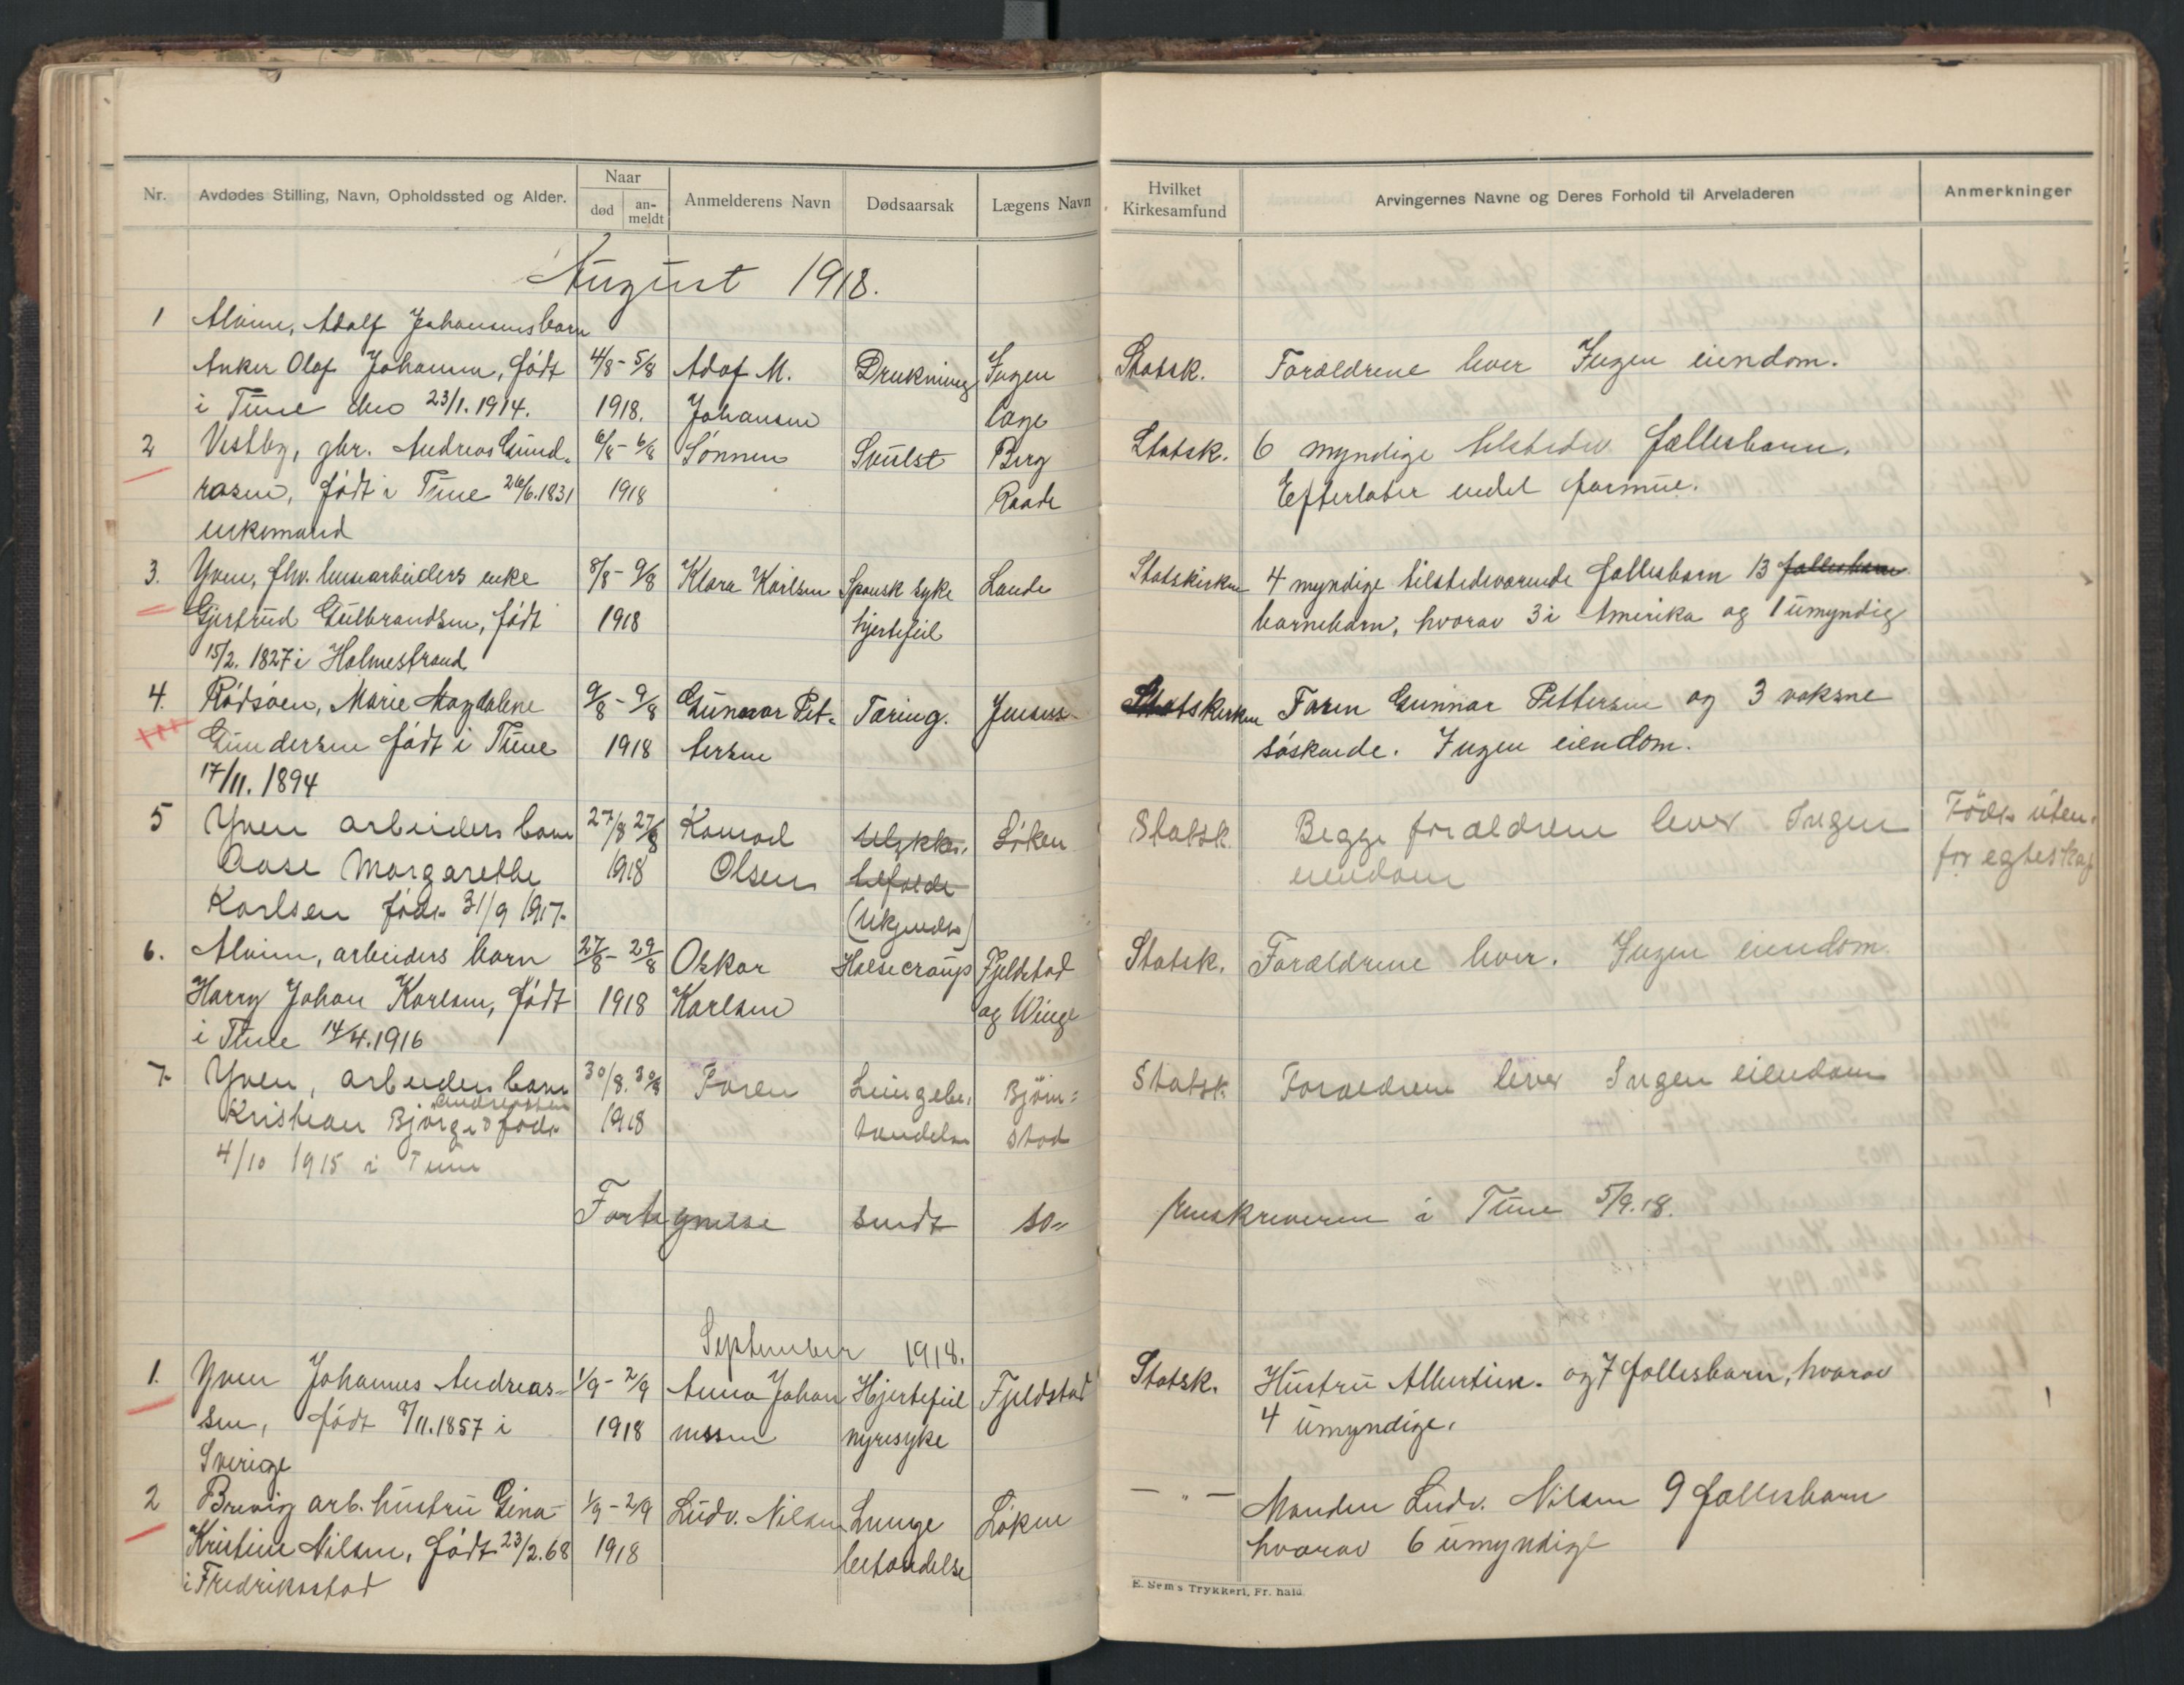 Nr. Avdødes Stilling, Navn, Opholdssted og Alder. Naar død an-meldt Anmelderens Navn Dødsaarsak Lægens Navn Hvilket Kirkesamfund Arvingernes Navne og Deres Forhold til Arveladeren Anmerkninger
August 1918.
1 Alvim, Adolf Johansens barn
Anker Olaf Johansen, født 4/8 - 5/8 Adof M. Drukning Ingen Statsk. Forældrene lever Ingen eiendom.
i Tune den 23/1. 1914. 1918. Johansen læge
2 Vestby, gbr. Andreas Gund- 6/8 - 6/8 Sønnen Svulst Berg Statsk. 6 myndige tilstedev. fællesbarn.
rosen, født i Tune 26/6.1831 1918 Raade Efterlater endel formue.
enkemand
3. Yven, fhv. husarbeiders enke 8/8 - 9/8 Klara Karlsen Spansk syke Lande Statskirken 4 myndige tilstedeværende fællesbarn 13 fællesbarn
Gjertrud Gulbrandsen, født 1918 hjertefeil barnebarn, hvorav 3 i Amerika og 1 umyndig
15/2. 1827 i Holmestrand
4. Rødsøen, Marie Magdalene 9/8 - 9/8 Gunnar Pet- Tæring. Jensen Statskirken Faren Gunnar Pettersen og 3 voksne
Gundersen født i Tune 1918 tersen søskende. Ingen eiendom.
17/11. 1894
5 Yven arbeiders barn 27/8 27/8 Konrad Ulykkes- Løken Statsk. Begge forældrene lever Ingen Født uten-
Aase Margarethe 1918 Olsen tilfælde eiendom for egteskap
Karlsen født 31/9 1917. (Ukjendt)
6. Alvim, arbeiders barn 27/8 - 29/8 Oskar Halsecroup Fjeldstad Statsk. Forældrene lever. Ingen eiendom.
Harry Johan Karlsen, født 1918 Karlsen og Winge
i Tune 14/4.1916
7. Yven, arbeiders barn 30/8. 30/8 Faren Lungebe- Bjørn- Statsk. Forældrene lever Ingen eiendom
Andreassen
Kristian Bjørge født 1918 tændelse stad
4/10 1915 i Tune
Fortegnelse sendt so- renskriveren i Tune 5/9.18.
September 1918.
1. Yven Johannes Andreas- 1/9 - 2/9 Anna Johan Hjertefeil Fjeldstad Statsk. Hustru Albertine. og 7 fællesbarn, hvorav
sen, født /11.1857 i 1918 nessen nyresyke 4 umyndige.
Sverige
2 Brevig arb. hustru Gina 1/9 - 2/9 Ludv. Nilsen Lunge Løken — " — Manden Ludv. Nilsen 9 fællesbarn
Kristine Nilsen, født 23/2.68 1918 betændelse hvorav 6 umyndige
i Fredriksstad
E. Sem's Trykkeri, Fr. hald.